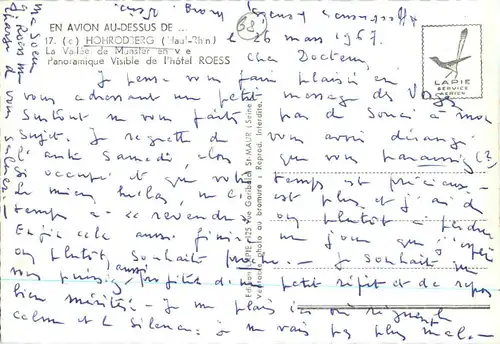 EN AVION AU-DESSUS DE ...
17. (c) HOHRODBERG (Haut-Rhin)
La Vallée de Munster en vue
Panoramique Visible de l'hôtel ROESS
68
le 26 mars 1967.
LAPIE
SERVICE
AERIEN
Cher Docteur,
Je pense vous faire plaisir en
vous adressant un petit message des Vosges
Surtout ne vous faites pas de souci à mon
sujet. Je regrette de vous avoir dérangé
l'autre Samedi, alors que vous paraissiez (?)
si occupé et que votre temps est précieux.
Le mien, hélas, ne l'est plus et j'ai du
temps à "revendre" ou plutôt à perdre
Enfin cela aussi finira un jour que j'espère
ou plutôt souhaite proche. Je souhaite que
vous puissiez aussi profiter d'un petit répit et de repos
bien mérités. Je me plais ici où règnent
calme et le silence: je ne vais pas plus mal.
Ma soeur
me charge de vous saluer.
Editions LAPIE 125 rue Garibaldi St-MAUR (Seine)
Véritable photo au bromure : Reprod. Interdite.